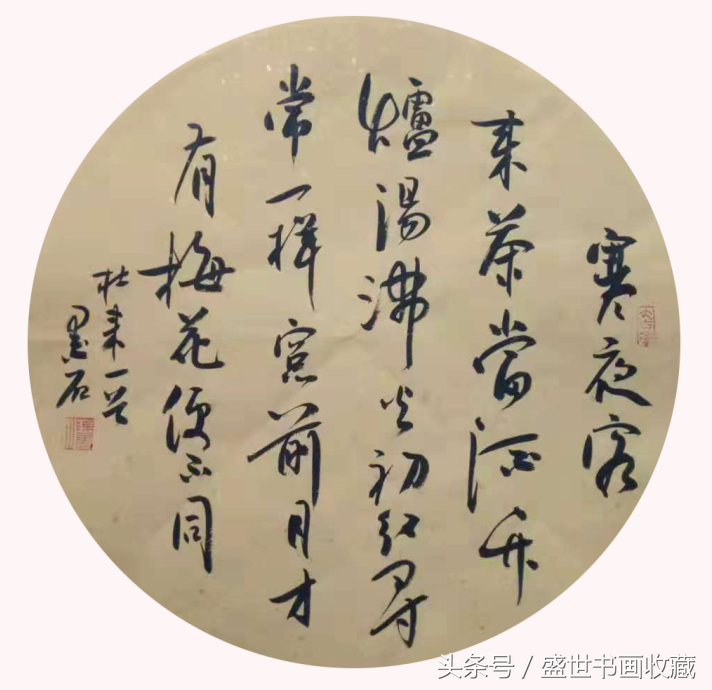 寒夜客
来茶當酒竹
爐湯沸火初红尋
常一樣窗前月才
有梅花便不同
杜耒一首
墨石
头条号 / 盛世书画收藏